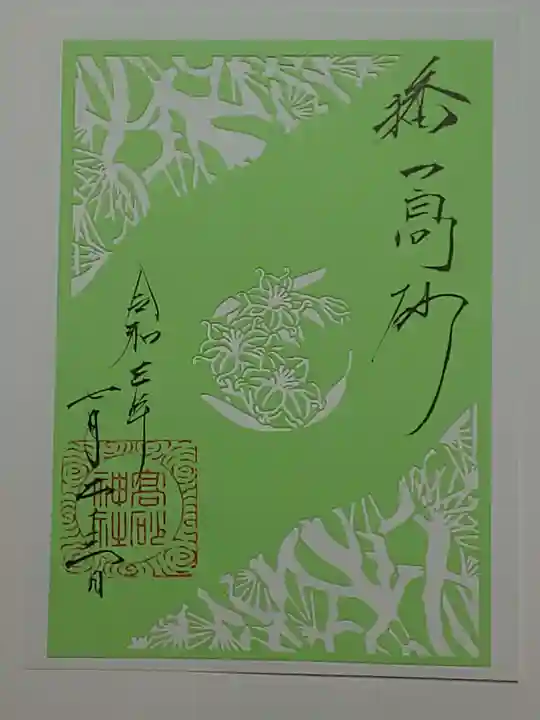 播高砂
令和三年
七月二十二日
高砂
神社